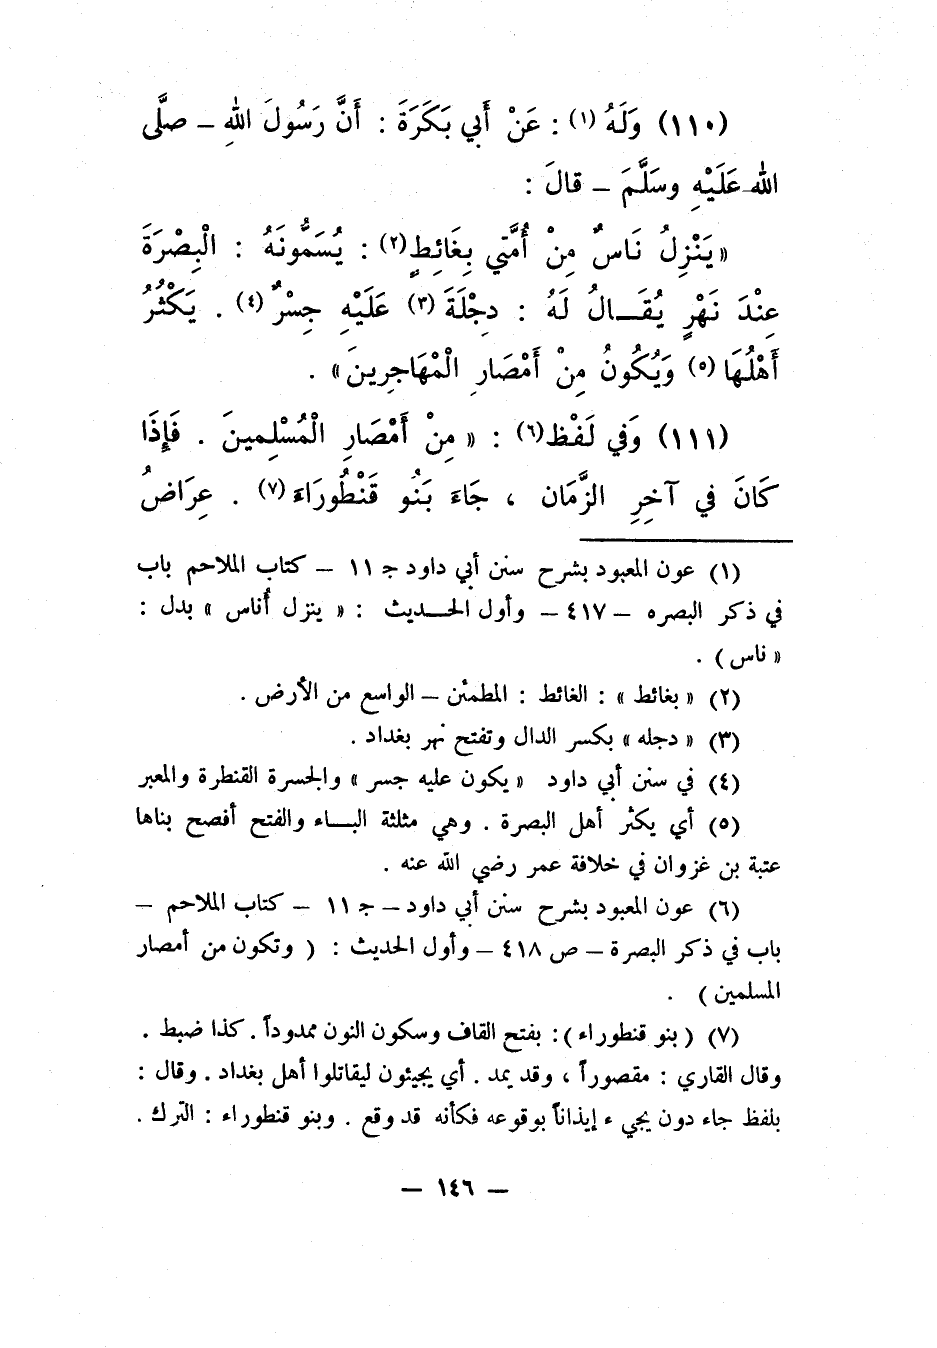 (١١٠) وَلَهُ (١) : عَنْ أَبي بَكَرَةَ : أَنَّ رَسُولَ اللهِ – صلَّى
الله عَلَيْهِ وسَلَّمَ – قالَ :
« يَنْزِلُ نَاسٌ مِنْ أُمَّتي بِغَائِطٍ (٢) : يُسَمُّونَهُ : الْبِصْرَةَ
عِنْدَ نَهْرٍ يُقَـــالُ لَهُ : دِجْلَةَ (٣) عَلَيْهِ جِسْرٌ (٤) . يَكْثُرُ
أَهْلُهَا (٥) وَيُكُونُ مِنْ أَمْصَارِ الْمْهَاجِرينَ » .
(١١١) وَفي لَفْظ (٦) : « مِنْ أَمْصَارِ الْمُسْلِمينَ . فَإِذَا
كَانَ في آخِرِ الزَّمَان ، جَاءَ بَنُو قَنْطُورَاءَ (٧) . عِرَاضُ
(١) عون المعبود بشرح سنن أبي داود جـ ١١ – كتاب الملاحم باب
في ذكر البصره – ٤١٧ – وأول الحـــديث : « ينزل أُناس » بدل :
« ناس ) .
(٢) « بغائط » : الغائط : المطمئن – الواسع من الأرض .
(٣) « دجله » بكسر الدال وتفتح نهر بغداد .
(٤) في سنن أبي داود « يكون عليه جسر » والجسرة القنطرة والمعبر
(٥) أي يكثر أهل البصرة . وهي مثلثة البـــاء والفتح أفصح بناها
عتبة بن غزوان في خلافة عمر رضي الله عنه .
(٦) عون المعبود بشرح سنن أبي داود – جـ ١١ – كتاب الملاحم –
باب في ذكر البصرة – ص ٤١٨ – وأول الحديث : ( وتكون من أمصار
المسلمين ) .
(٧) ( بنو قنطوراء ) : بفتح القاف وسكون النون ممدوداً . كذا ضبط .
وقال القاري : مقصوراً ، وقد يمد . أي يجيئون ليقاتلوا أهل بغداد . وقال :
بلفظ جاء دون يجيء إيذاناً بوقوعه فكأنه قد وقع . وبنو قنطوراء : الترك .
– ١٤٦ –